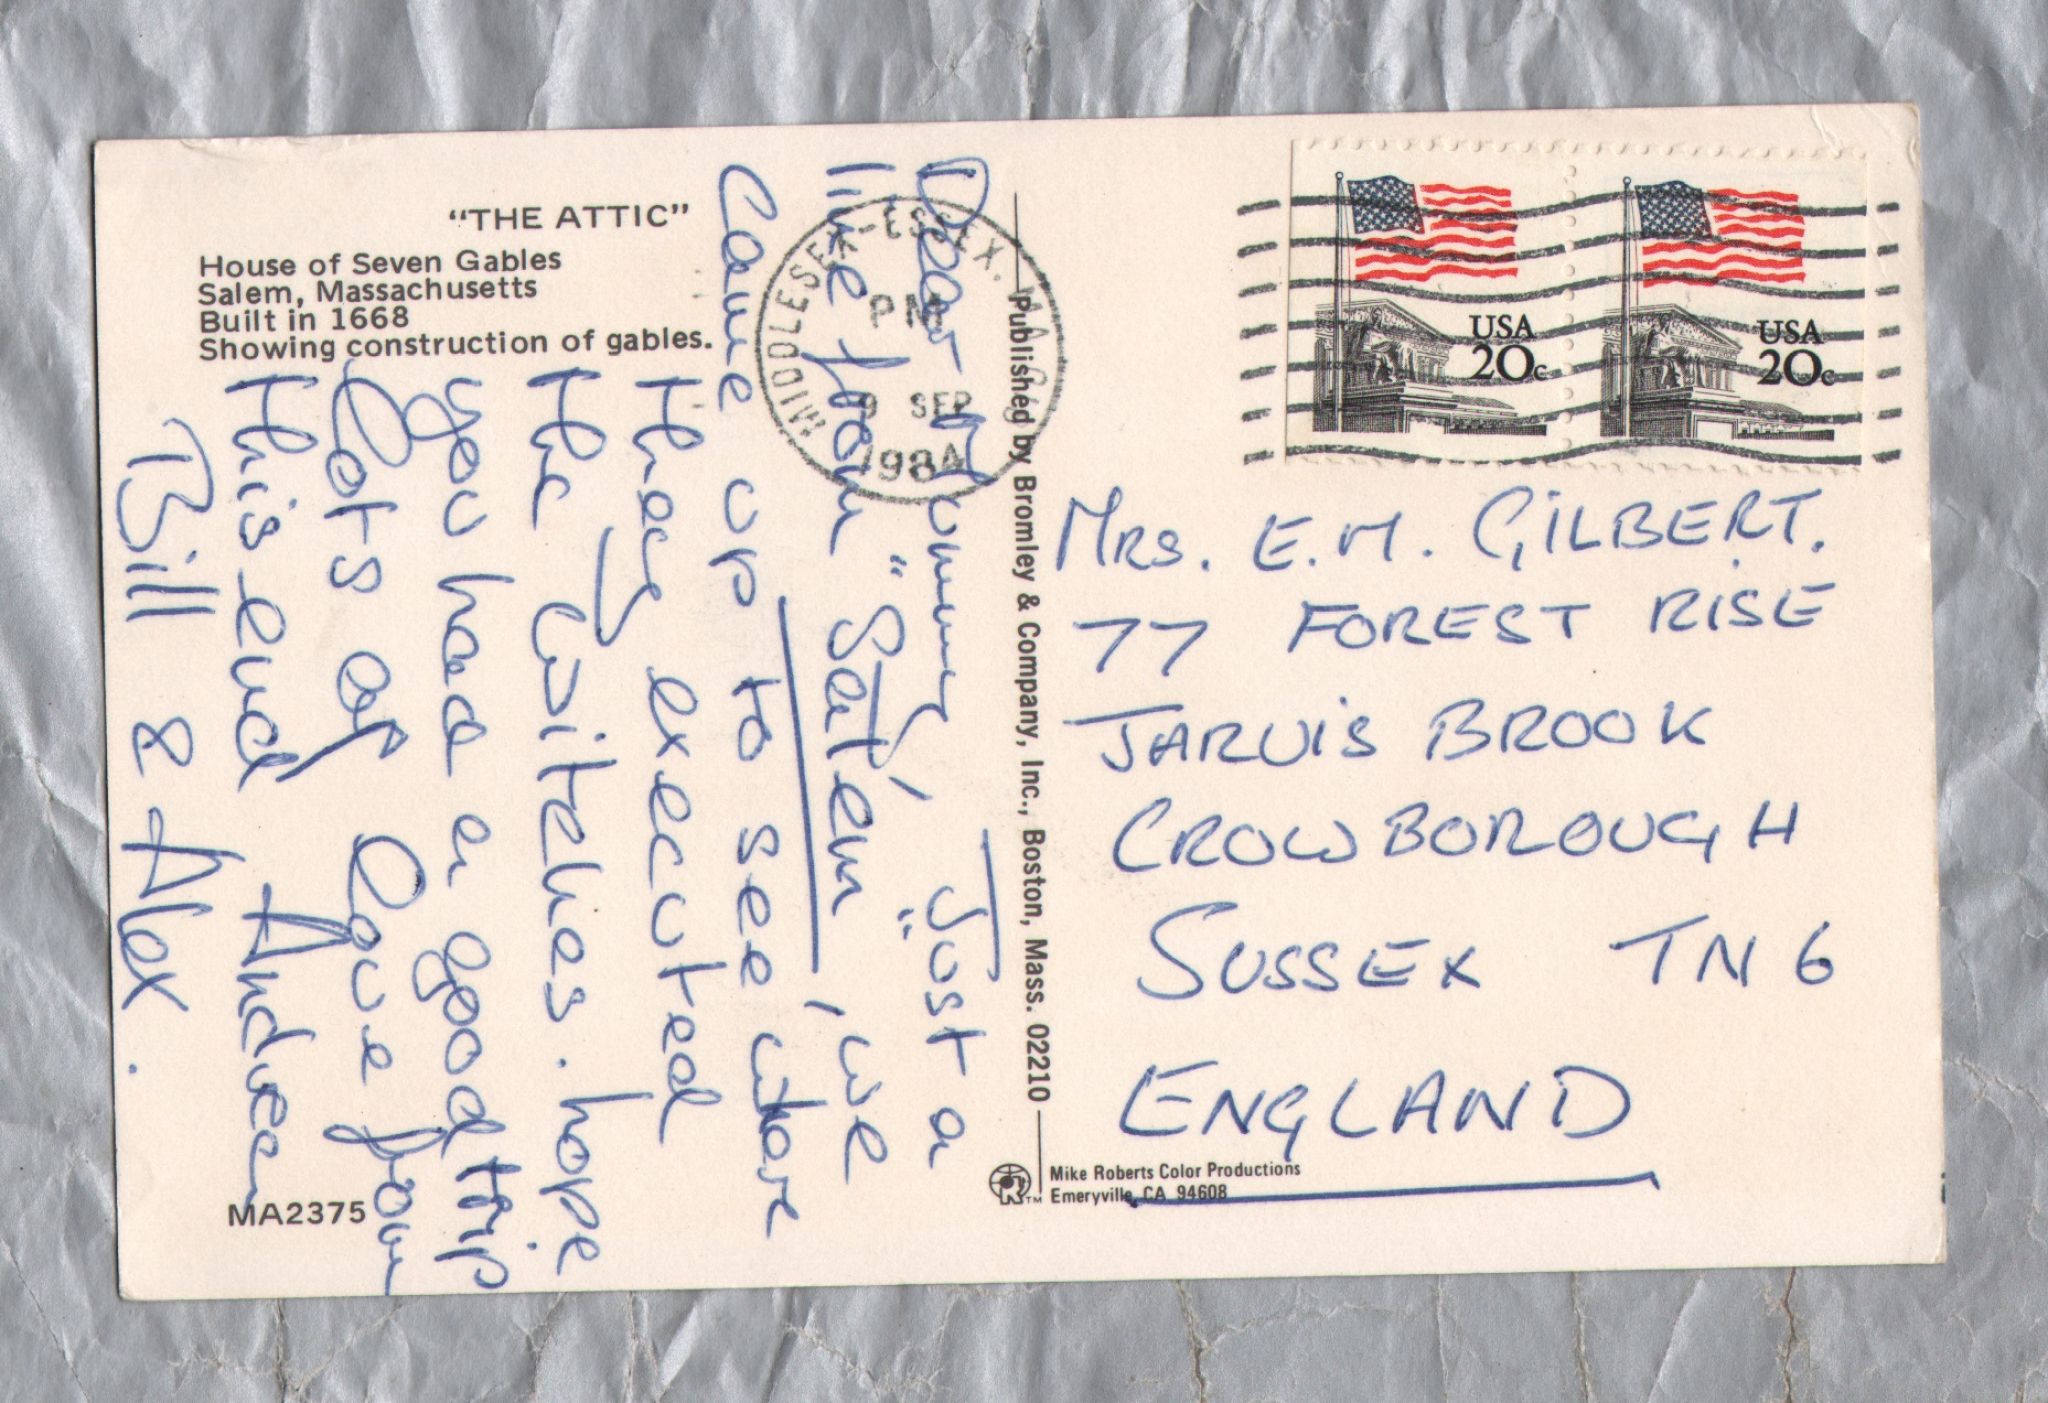 "THE ATTIC"
House of Seven Gables
Salem, Massachusetts
Built in 1668
Showing construction of gables.
Dear Mummy, Just a
line from "Salem", we
came up to see where
they executed
the witches. hope
you had a good trip
Lots of love from
this end Andrea
Bill & Alex.
MA2375
MIDDLESEX-ESSEX. MA
PM
SEP
1984
Published by Bromley & Company, Inc., Boston, Mass. 02210
USA
20c
USA
20c
MRS. E.M. GILBERT.
77 FOREST RISE
JARVIS BROOK
CROWBOROUGH
SUSSEX TN6
ENGLAND
Mike Roberts Color Productions
Emeryville, CA 94608